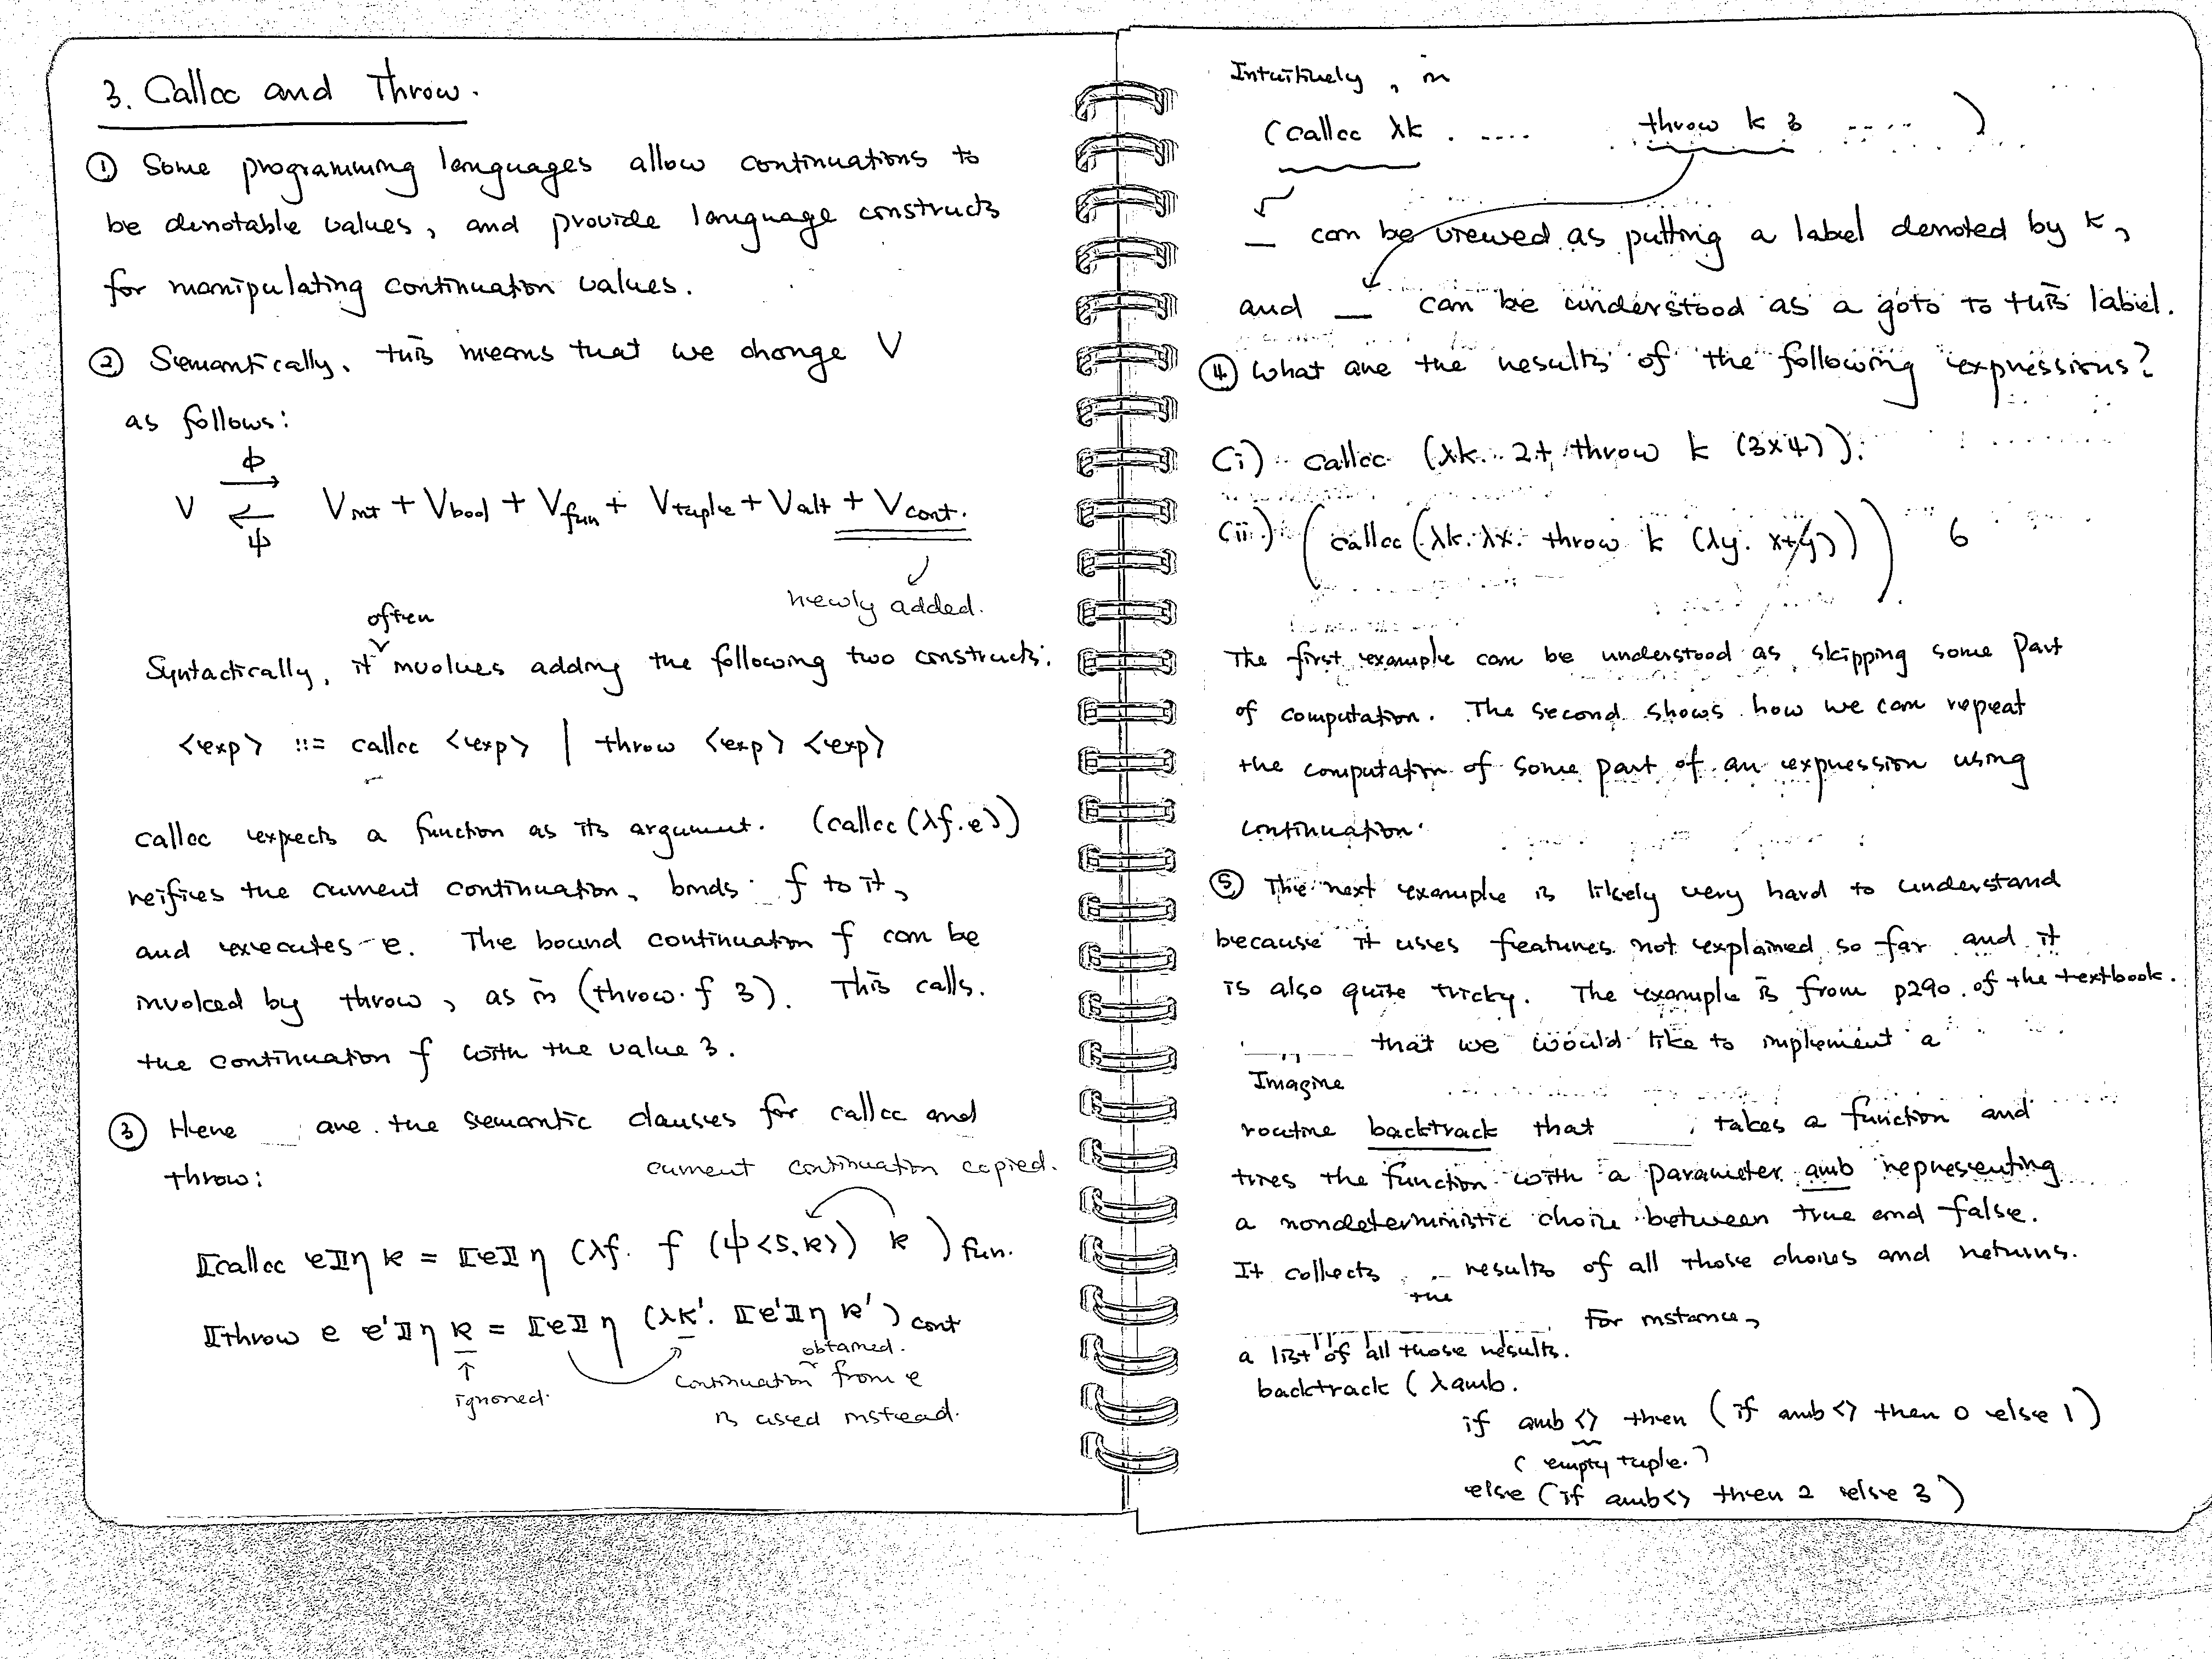 3. Callcc and Throw.
① Some programming languages allow continuations to
be denotable values, and provide language constructs
for manipulating continuation values.
② Semantically, this means that we change V
as follows:
V ⇄ V_int + V_bool + V_fun + V_tuple + V_alt + V_cont.
ϕ
ψ
newly added.
often
Syntactically, it involves adding the following two constructs:
<exp> ::= callcc <exp> | throw <exp> <exp>
callcc expects a function as its argument. (callcc (λf.e))
reifies the current continuation, binds f to it,
and executes e. The bound continuation f can be
invoked by throw, as in (throw f 3). This calls
the continuation f with the value 3.
③ Here are the semantic clauses for callcc and
throw:
current continuation copied.
⟦callcc e⟧η κ = ⟦e⟧η (λf. f (ψ<5,κ>) κ)_fun.
⟦throw e e'⟧η κ = ⟦e⟧η (λκ'. ⟦e'⟧η κ')_cont
ignored.
obtained
continuation from e
is used instead.
Intuitively, in
(callcc λk. .... throw k 3 .... )
_ can be viewed as putting a label denoted by k,
and _ can be understood as a goto to this label.
④ What are the results of the following expressions?
(i) callcc (λk. 2+ throw k (3×4)).
(ii) (callcc (λk. λx. throw k (λy. x+y))) 6
The first example can be understood as skipping some part
of computation. The second shows how we can repeat
the computation of some part of an expression using
continuation.
⑤ The next example is likely very hard to understand
because it uses features not explained so far and it
is also quite tricky. The example is from p290 of the textbook.
that we would like to implement a
Imagine
routine backtrack that takes a function and
tires the function with a parameter amb representing
a nondeterministic choice between true and false.
It collects results of all those choices and returns.
the
For instance,
a list of all those results.
backtrack (λamb.
if amb <> then (if amb <> then 0 else 1)
(empty tuple.)
else (if amb <> then 2 else 3)